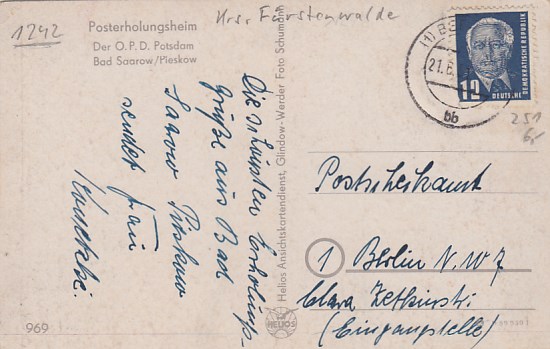 1242
Krs. Fürstenwalde
Posterholungsheim
Der O. P. D. Potsdam
Bad Saarow/Pieskow
Die schönsten Erholungs-
grüße aus Bad
Saarow Pieskow
sendet Frau
Helios Ansichtskartendienst, Glindow-Werder Foto Schumann
HELIOS
969
(1)
21.
bb
DEUTSCHE
DEMOKRATISCHE REPUBLIK
12
251
6,-
Postscheckamt
1 Berlin N.W 7
Clara Zetkinstr.
(Eingangstelle)